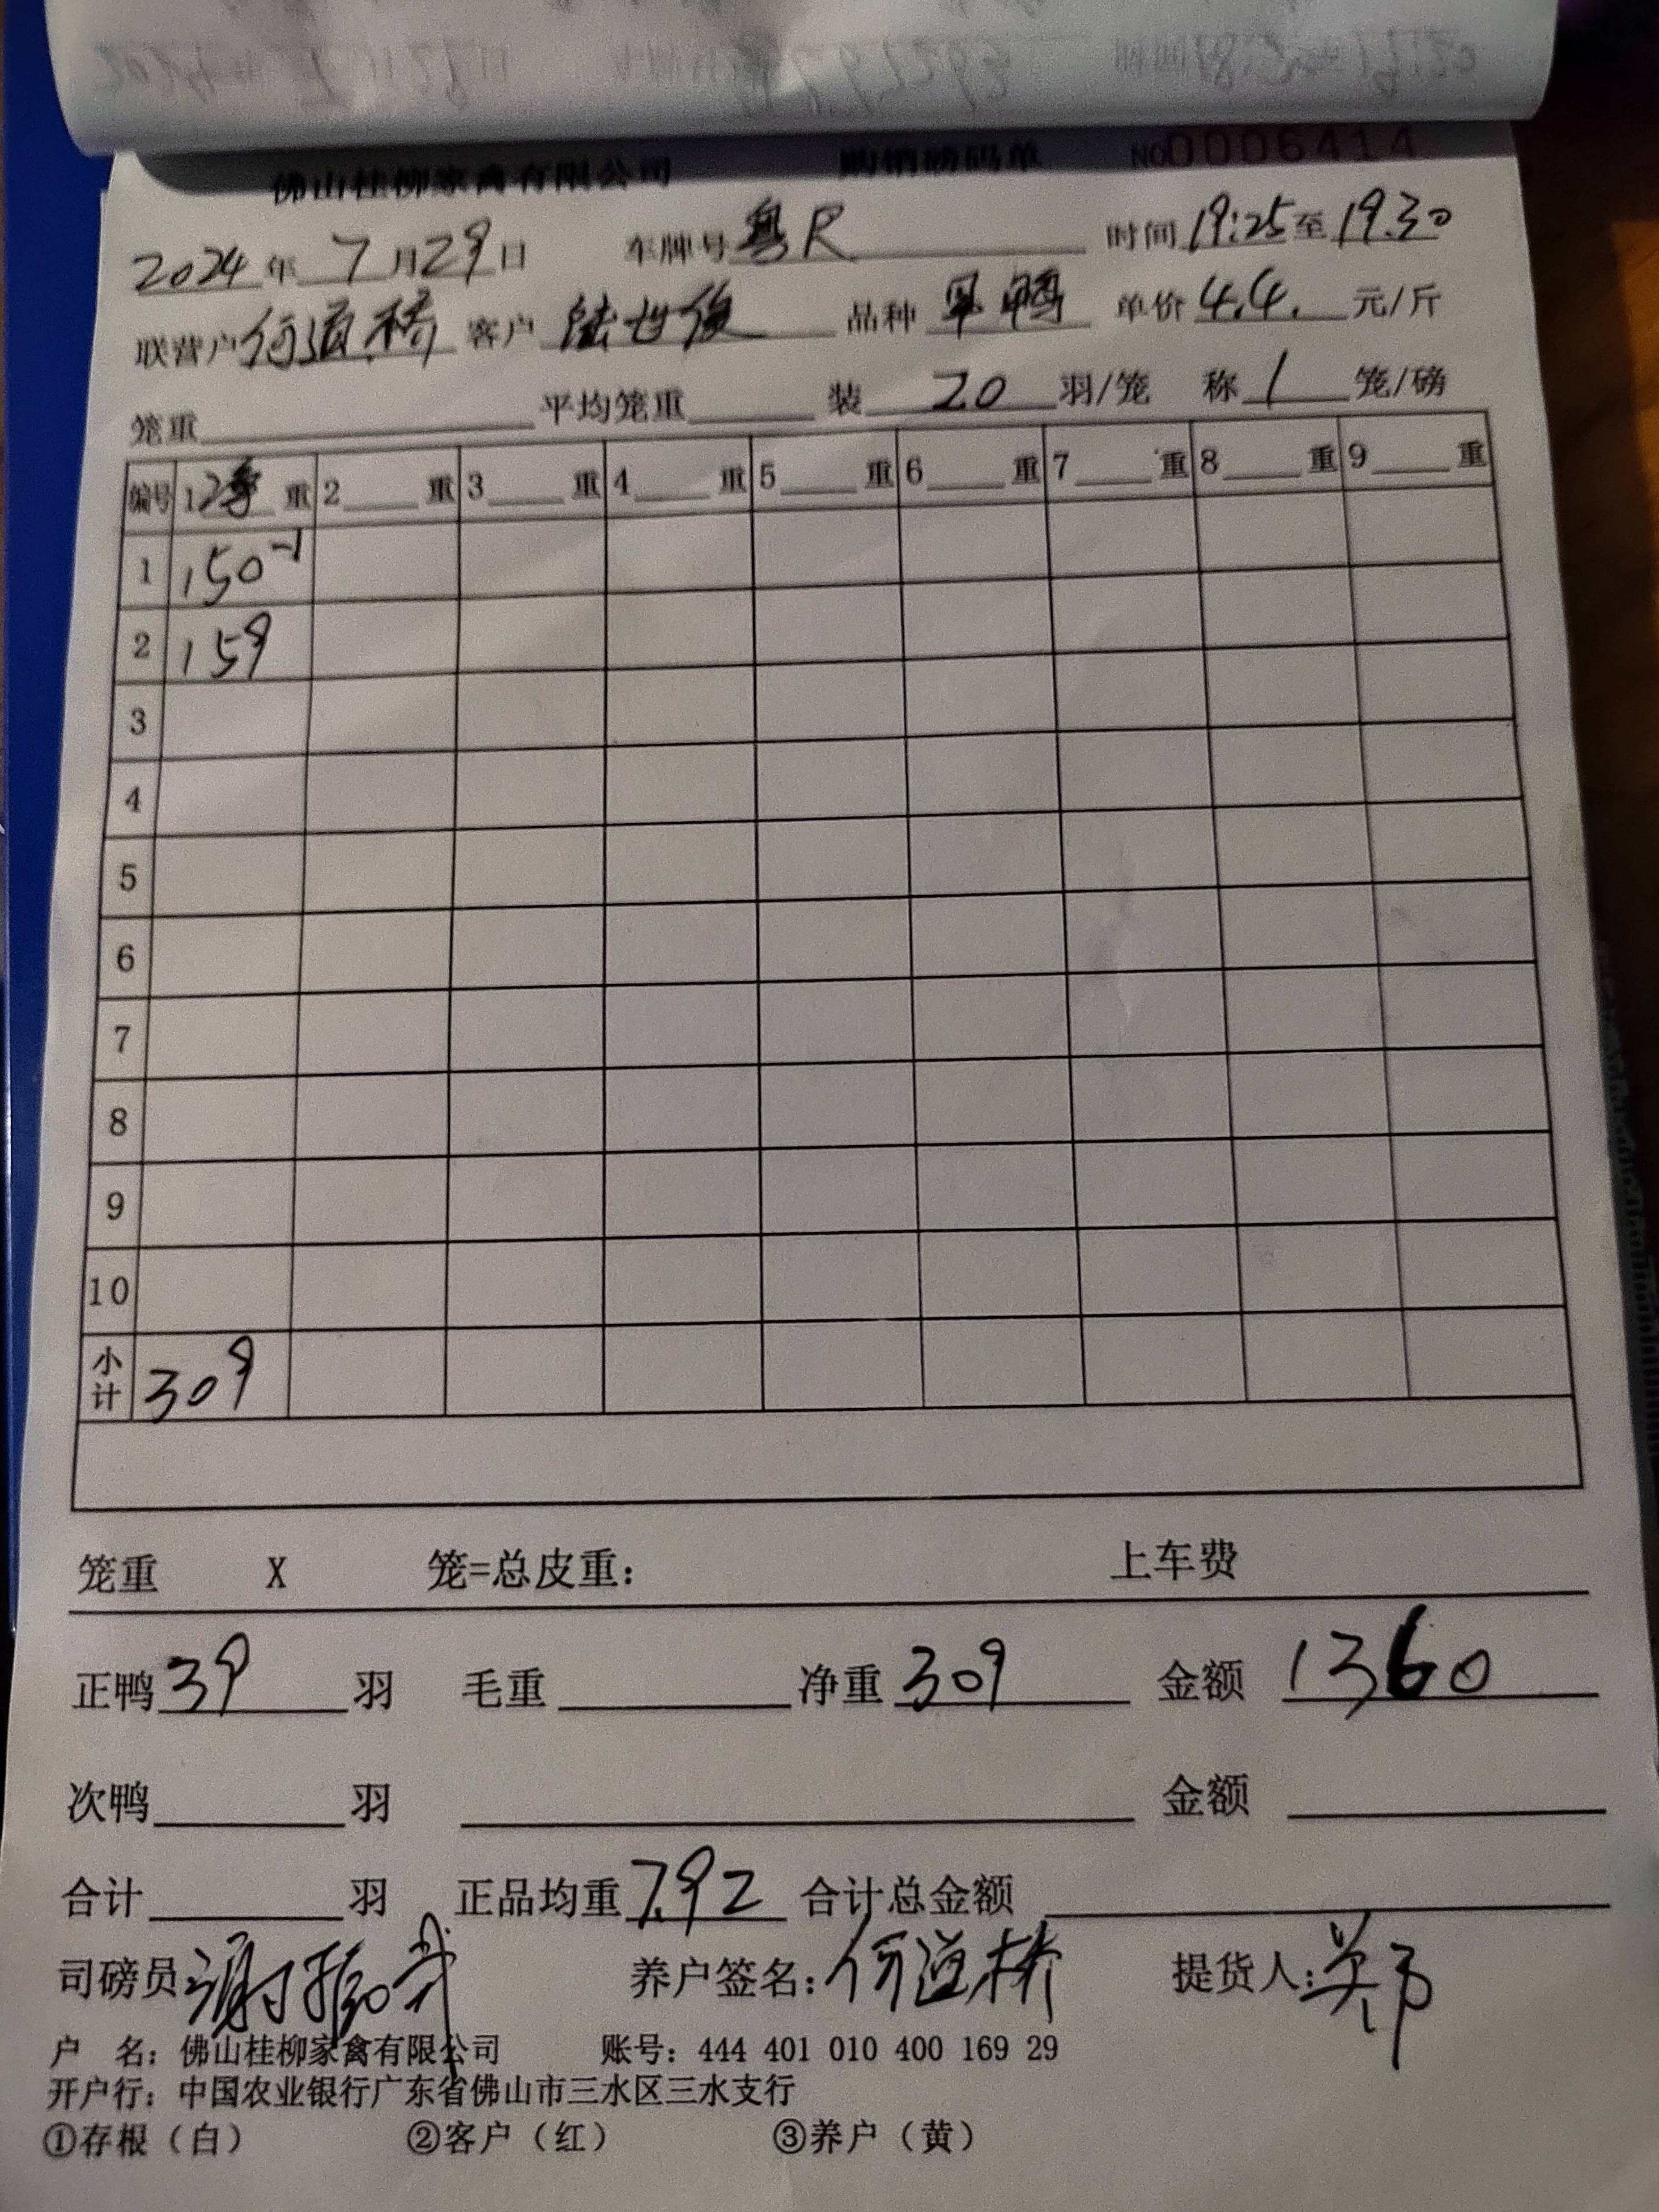 佛山桂柳家禽有限公司 购销磅码单 NO0006414
2024年 7月29日 车牌号 粤R 时间 19:25 至 19.30
联营户 何道桥 客户 陆世俊 品种 单价 4.4. 元/斤
笼重 平均笼重 装 20 羽/笼 称 1 笼/磅
编号 1 净 重 2 重 3 重 4 重 5 重 6 重 7 重 8 重 9 重
1 150-1
2 159
3
4
5
6
7
8
9
10
小计 309
笼重 X 笼=总皮重: 上车费
正鸭 39 羽 毛重 净重 309 金额 1360
次鸭 羽 金额
合计 羽 正品均重 7.92 合计总金额
司磅员 养户签名: 何道桥 提货人:
户 名: 佛山桂柳家禽有限公司 账号: 444 401 010 400 169 29
开户行: 中国农业银行广东省佛山市三水区三水支行
①存根(白) ②客户(红) ③养户(黄)